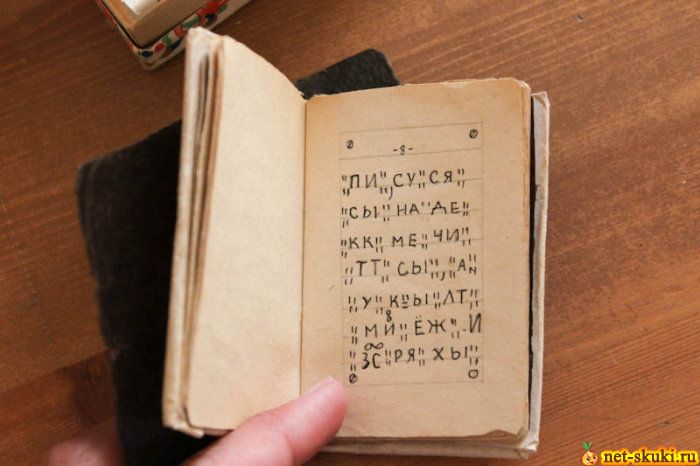 -8-
"ПИ",СУ"СЯ"
"СЫ"НА"ДЕ"
"КК"МЕ"ЧИ"
"ТТ"СЫ",АN
"У"КЫ"ЛТ"
"МЙ"ЁЖ"И
"ЗС"РЯ"ХЫ"
net-skuki.ru